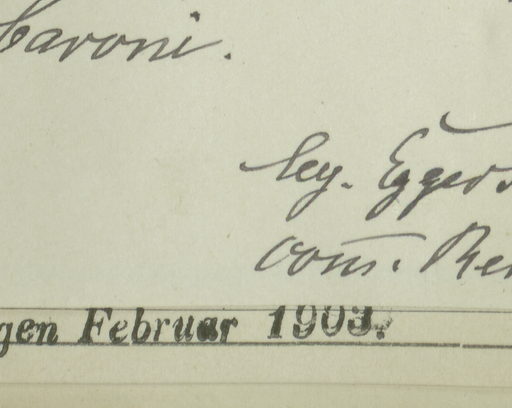 Caroni.
leg. Eggers
com. Ren
gen Februar 1903.